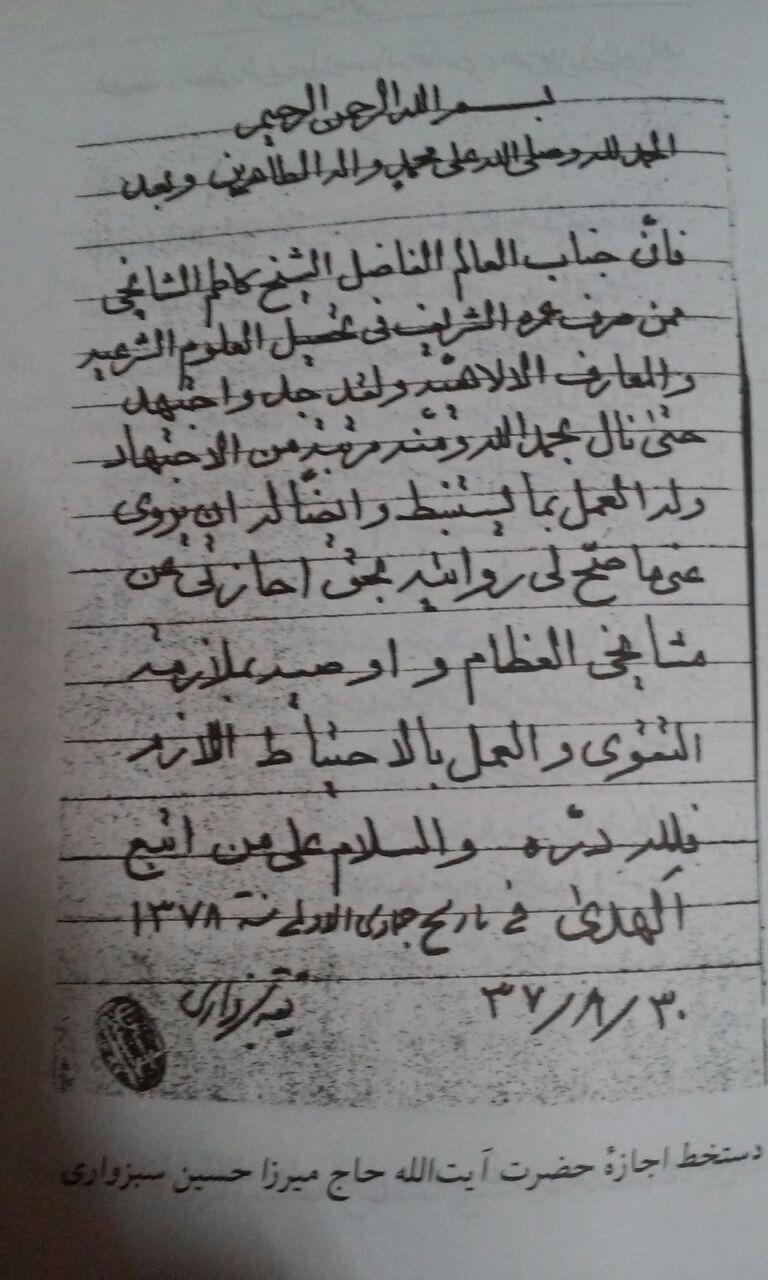 بسم الله الرحمن الرحیم
الحمد لله وصلی الله علی محمد واله الطاهرین وبعد
فانّ جناب العالم الفاضل الشیخ کاظم الشانجی
ممن صرف عمره الشریف فی تحصیل العلوم الشرعیه
والمعارف الالاهیّه ولقد جد واجتهد
حتی نال بحمد الله ومنّه مرتبة من الاجتهاد
وله العمل بما یستنبط وایضاً له ان یروی
عنی ما صحّ لی روایته بحق اجازتی عن
مشایخی العظام و اوصیه بملازمة
التقوی والعمل بالاحتیاط اللازم
فلله درّه والسلام علی من اتبع
الهدی فی تاریخ جمادی الاولی سنة ۱۳۷۸
۳۷/۸/۳۰
سبزواری
دستخط اجازهٔ حضرت آیت‌الله حاج میرزا حسین سبزواری